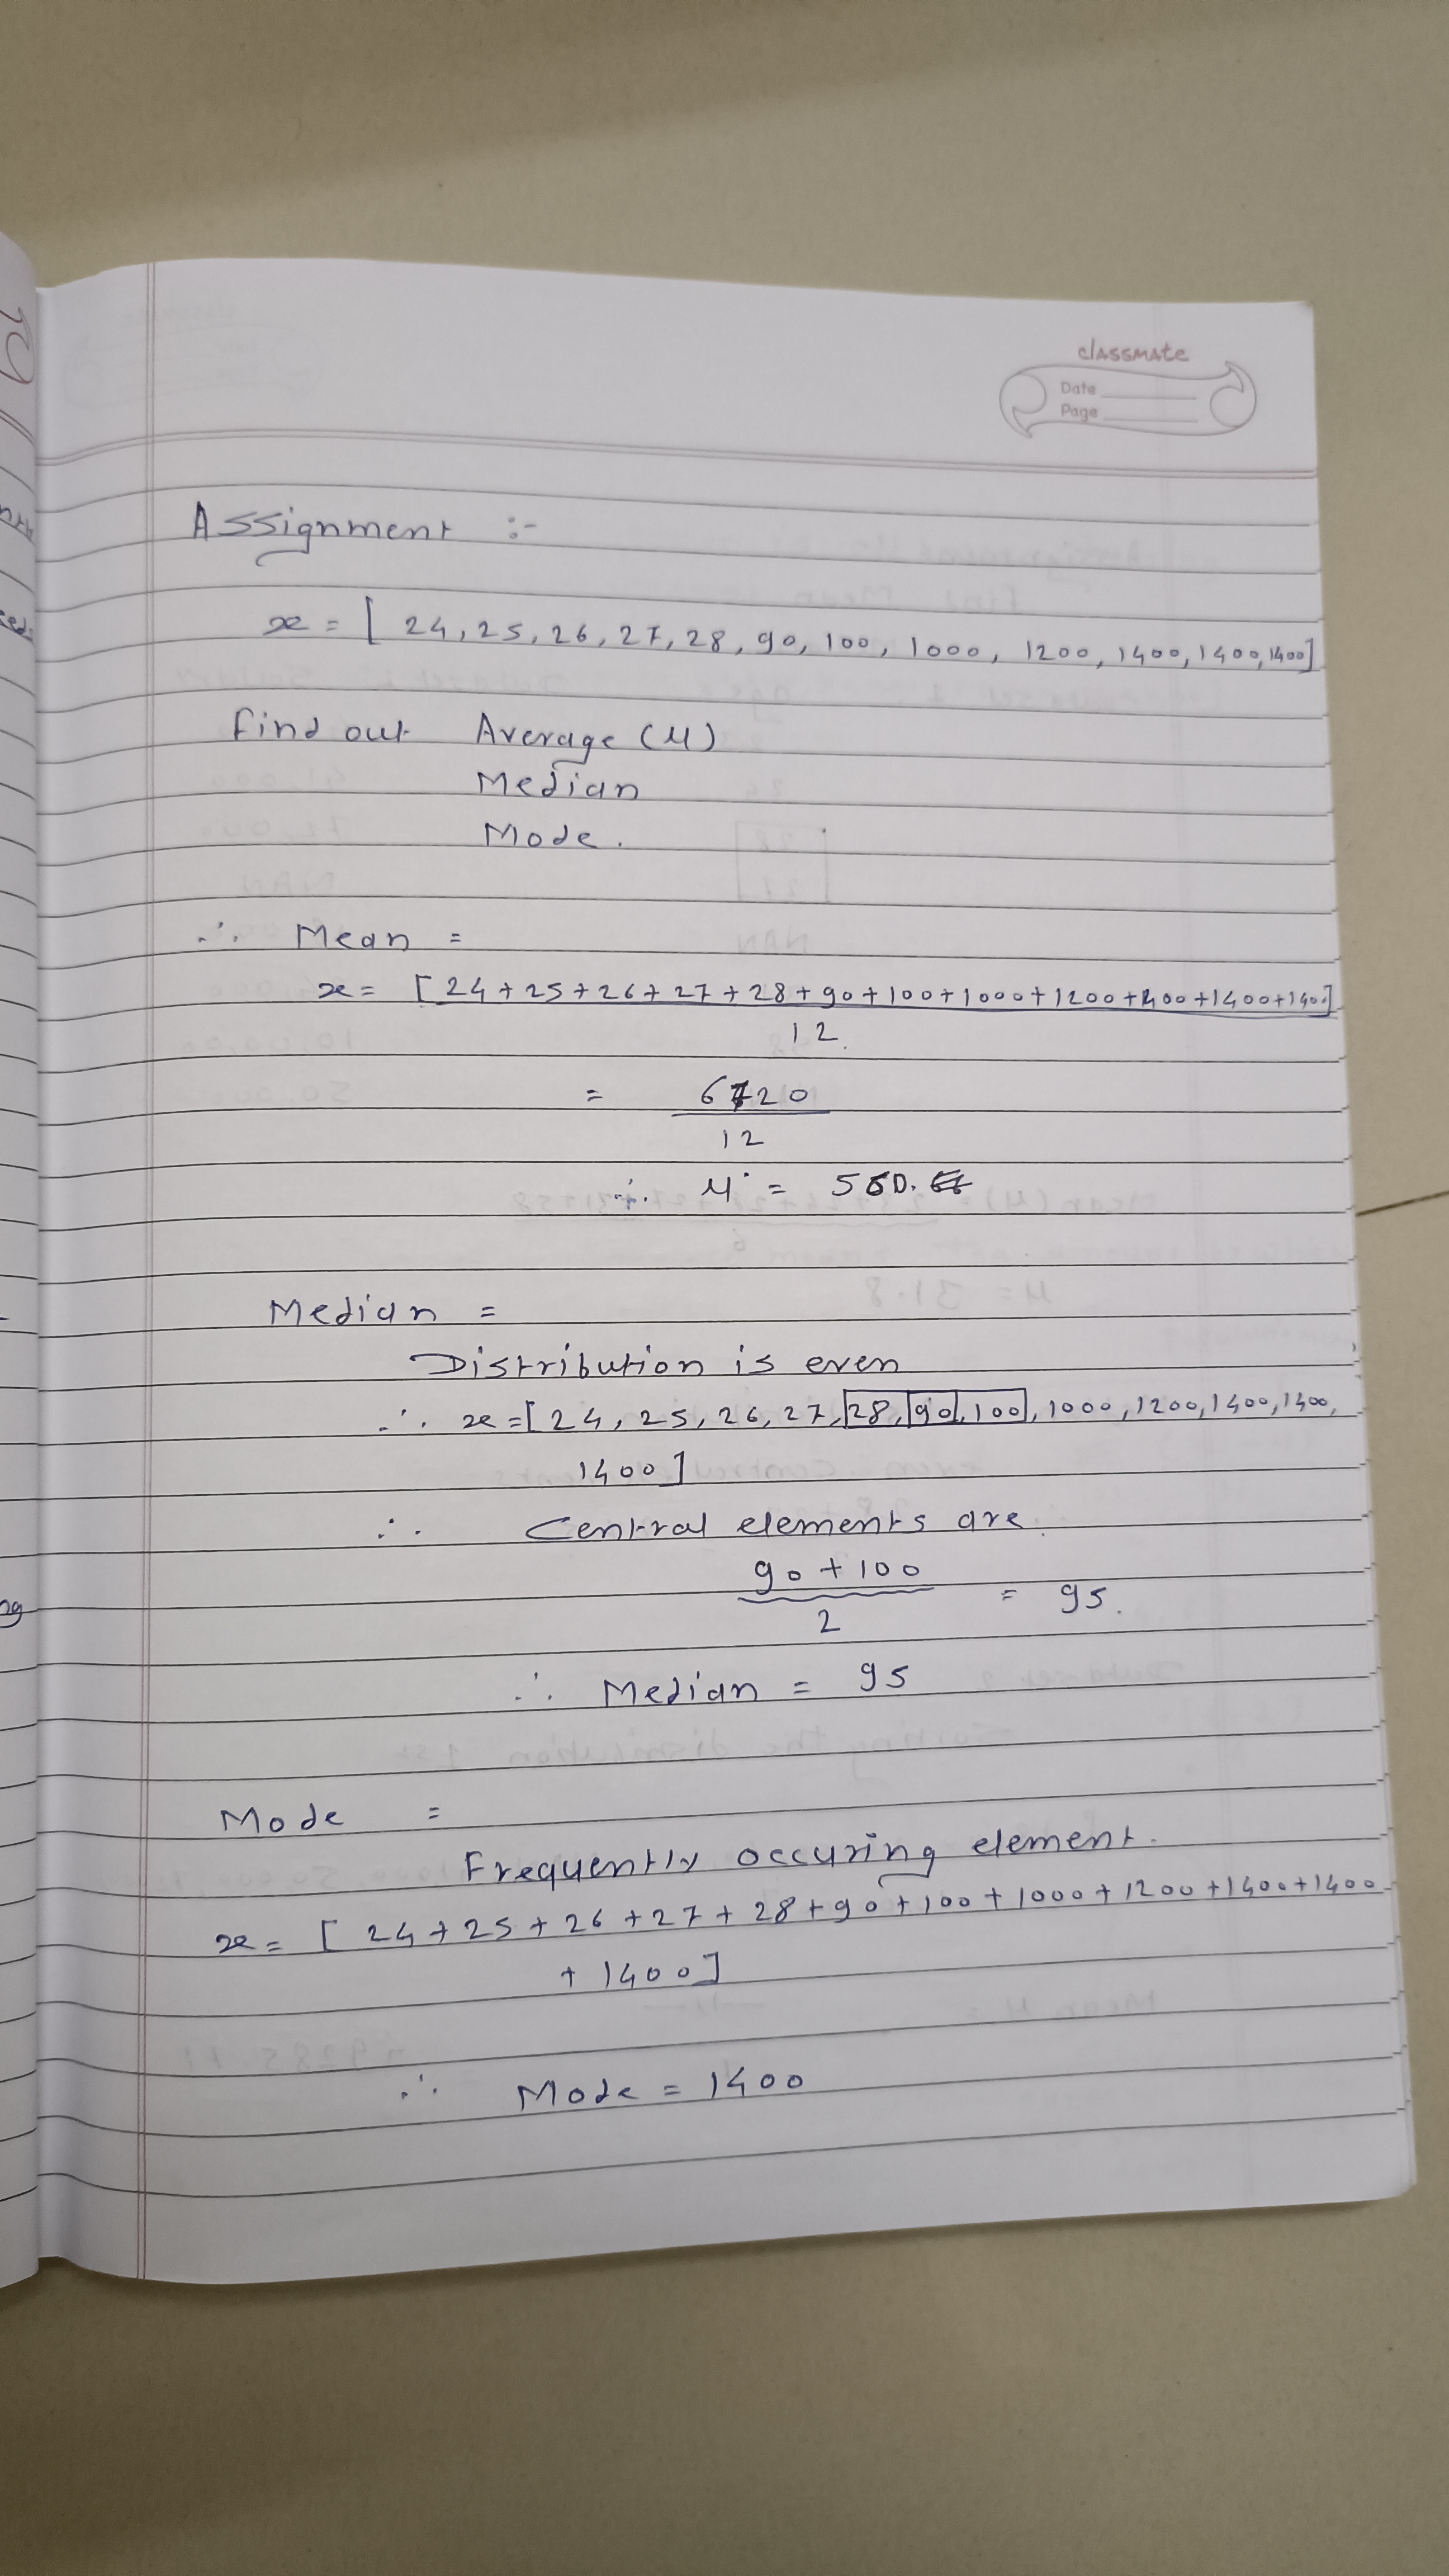 classmate
Date
Page
Assignment :-
x = [ 24, 25, 26, 27, 28, 90, 100, 1000, 1200, 1400, 1400, 1400]
Find out Average (μ)
Median
Mode.
∴ Mean =
x = [ 24 + 25 + 26 + 27 + 28 + 90 + 100 + 1000 + 1200 + 1400 + 1400 + 1400]
12
= 6720
12
∴ μ = 560.
Median =
Distribution is even
∴ x = [ 24, 25, 26, 27, 28, 90, 100, 1000, 1200, 1400, 1400,
1400 ]
∴ Central elements are
90 + 100
2
= 95.
∴ Median = 95
Mode =
Frequently occuring element.
x = [ 24 + 25 + 26 + 27 + 28 + 90 + 100 + 1000 + 1200 + 1400 + 1400
+ 1400 ]
∴ Mode = 1400